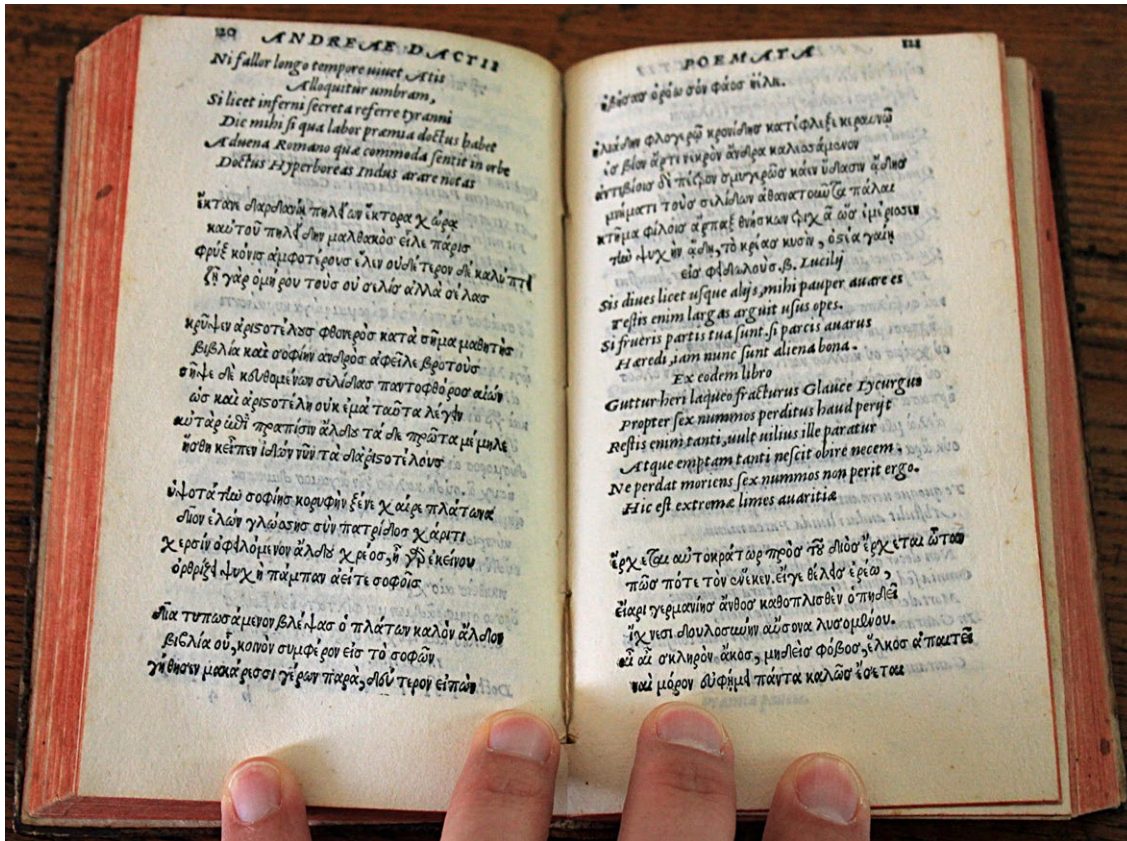 120 ANDREAE DACTII
Ni fallor longo tempore uiuet Atis
Alloquitur umbram,
Si licet inferni secreta referre tyranni
Dic mihi si qua labor præmia doctus habet
Aduena Romano quæ commoda sentit in orbe
Doctus Hyperboreas Indus arare notas
ἔκτανε δαρδανίδην πηλείων ἕκτορα χώρα
καὐτοῦ πηλείδην μαλθακὸς εἷλε πάρις
φρὺξ κόνις ἀμφοτέρους ἕλεν οὐδέτερον δὲ καλύπτει
ζῇ γὰρ ὁμήρου τοὺς οὐ σελὶς ἀλλὰ σέλας
κρῦψεν ἀριστοτέλους φθονερὸς κατὰ σῆμα μαθητὴς
βιβλία καὶ σοφίην ἀνδρὸς ἀφεῖλε βροτοὺς
σῆψε δὲ κευθομένων σελίδας παντοφθόρος αἰών
ὡς καὶ ἀριστοτέλη οὐκ ἐμὰ ταῦτα λέγειν
αὐτὰρ πραπίσιν ἄλδου τὰ δὲ πρῶτα μέμηλε
ἤσθη κεἶπεν ἰδὼν νῦν τὰ δ᾽ ἀριστοτέλους
ὑψοτάτω σοφίης κορυφὴν ξένε χαῖρε πλάτωνα
δῖον ἑλὼν γλώσσης σὺν πατρίδιος χάριτι
χερσὶν ὀφειλόμενον ἄλδου χρέος, ἢ γὰρ ἐκείνου
ὀρθρίζει ψυχὴ πάμπαν ἀεί τε σοφοῖς
τυπωσάμενον βλέψας ὁ πλάτων καλὸν ἄλδον
βιβλία οὗ, κοινὸν συμφέρον εἰς τὸ σοφῶν
γήθησεν μακάρεσσι γέρων παρὰ, δεύτερον εἰπὼν
POEMATA 121
ἔβησας ὁρόω σὸν φάος
φλογερῷ κρονίδης κατέφλεξε κεραυνῷ
ἐς βίον ἄρτι νεκρὸν ἄνδρα καλεσσάμενον
ἀντιβίοις δὲ πέφρον σμυγερῶς κἀιν ὕδασιν ᾅδης
μνήματι τοὺς σελίδων ἀθανατοῦντα πάλαι
κτῆμα φίλοις ἅρπαξ θνήσκων διχᾶ ὡς ἐμέρισσεν
τὼ ψυχὴν ᾅδῃ, τὸ κρέας κυσὶν, ὀστέα γαίῃ
εἰς φειδωλούς. β. Lucilij
Sis diues licet usque alijs, mihi pauper auare es
Testis enim largas arguit usus opes.
Si frueris partis tua sunt. si parcis auarus
Hæredi, iam nunc sunt aliena bona.
Ex eodem libro
Guttur heri laqueo fracturus Glauce Lycurgus
Propter sex nummos perditus haud perijt
Restis enim tanti, uult uilius ille paratur
Atque emptam tanti nescit obire necem
Ne perdat moriens sex nummos non perit ergo.
Hic est extremæ limes auaritiæ
ἔρχεται αὐτοκράτωρ πρὸς τοῦ διὸς ἔρχεται ὦταν
πῶς πότε τὸν ἕνεκεν. εἴγε θέλεις ἐρέω,
εἴαρι γερμανίης ἄνθος καθοπλισθὲν ὀπηδεῖ
ἴχνεσι δουλοσύνην αὔσονα λυσομένου.
αἲ αἲ σκληρὸν ἄκος, μηδεὶς φόβος, ἕλκος ἀπαιτεῖ
ναὶ μόρον εὐφήμει πάντα καλῶς ἔσεται